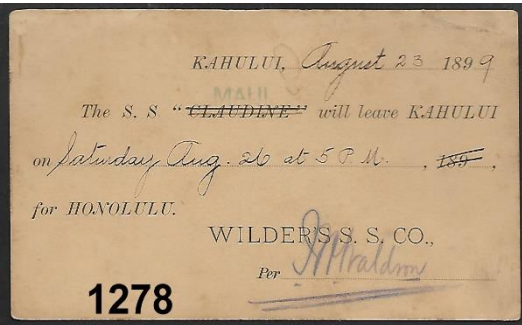 KAHULUI, August 23 1899
MAUI
The S. S "CLAUDINE" will leave KAHULUI
on Saturday Aug. 26 at 5 P.M. , 189 ,
for HONOLULU.
WILDER'S S. S. CO.,
Per Waldron
1278